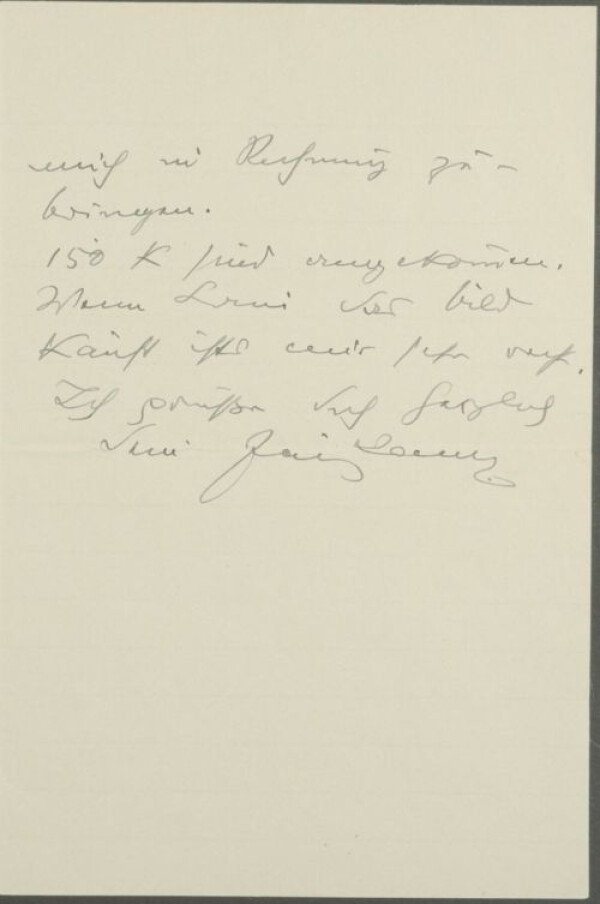 mich in Rechnung zu-
bringen.
150 K sind angekommen.
Wenn das Bild
kauft ists mir sehr recht.
Ich grüße Dich herzlich
Dein